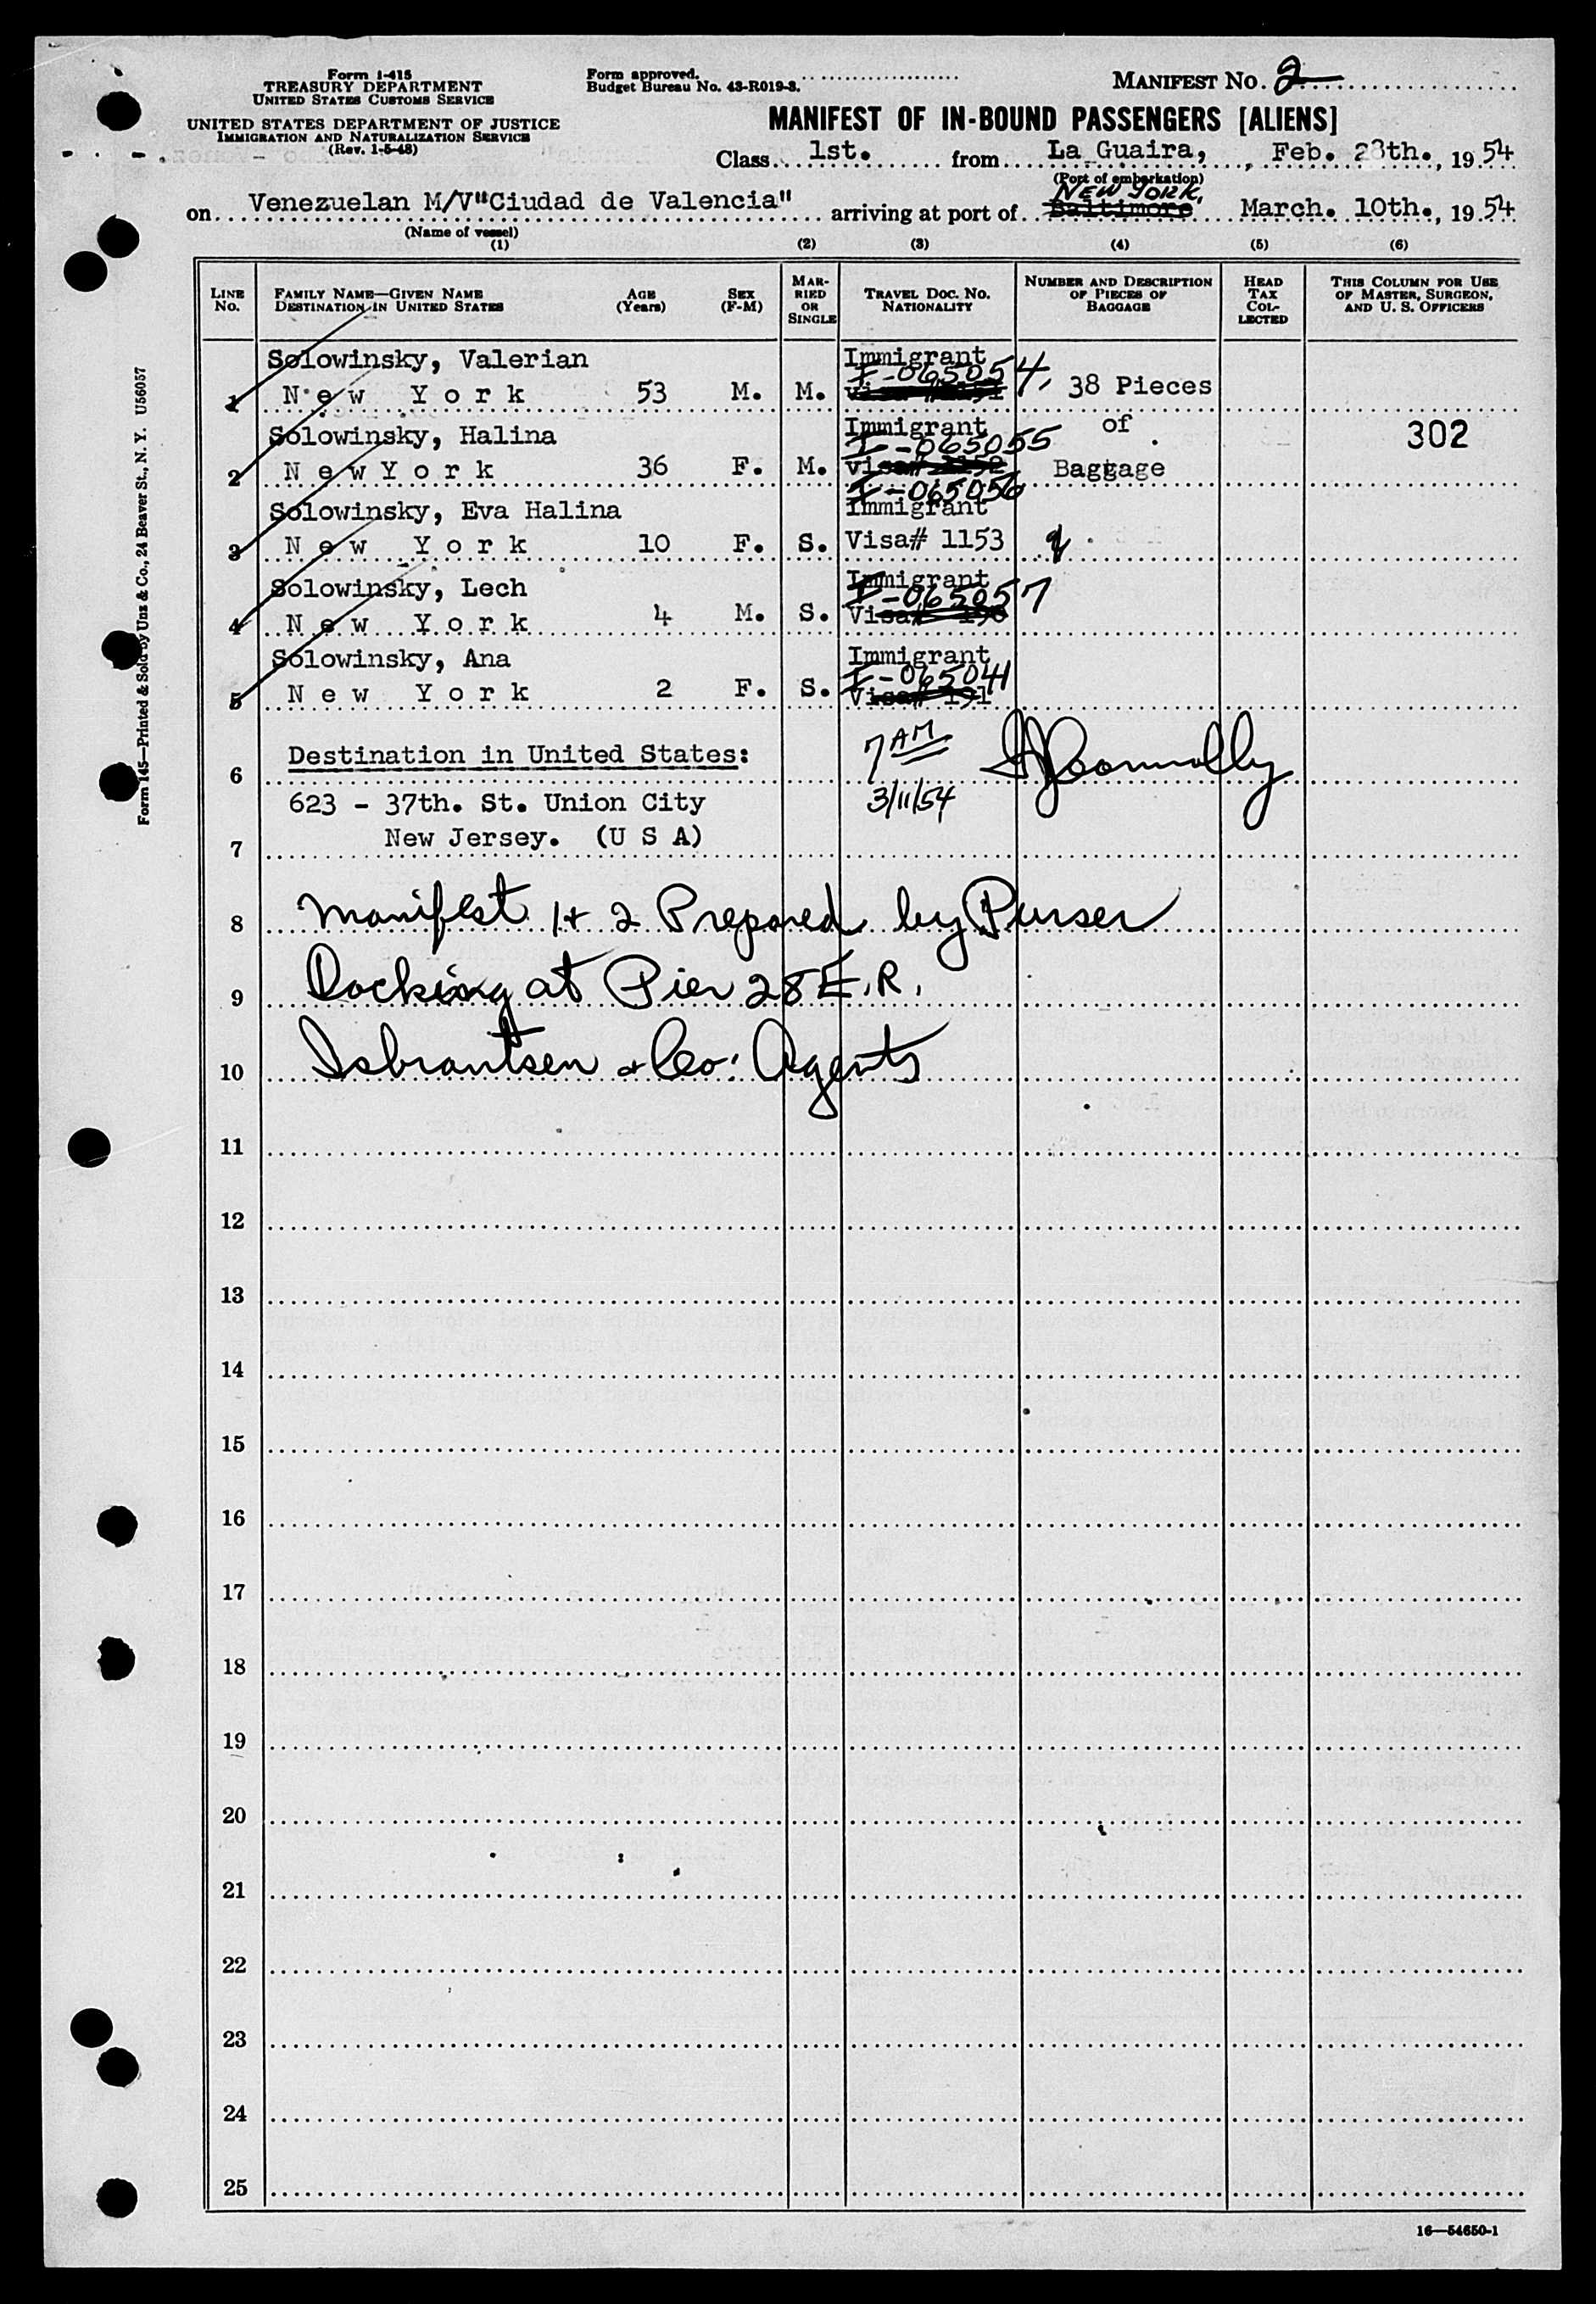 Form I-415
TREASURY DEPARTMENT
UNITED STATES CUSTOMS SERVICE
UNITED STATES DEPARTMENT OF JUSTICE
IMMIGRATION AND NATURALIZATION SERVICE
(Rev. 1-5-48)
Form approved.
Budget Bureau No. 43-R019-3.
MANIFEST No. 2
MANIFEST OF IN-BOUND PASSENGERS [ALIENS]
Class 1st. from La Guaira, Feb. 28th., 1954
(Port of embarkation)
NEW YORK,
on Venezuelan M/V"Ciudad de Valencia" arriving at port of Baltimore March. 10th., 1954
(Name of vessel)
(1) (2) (3) (4) (5) (6)
LINE No. FAMILY NAME—GIVEN NAME DESTINATION IN UNITED STATES AGE (Years) SEX (F-M) MARRIED OR SINGLE TRAVEL DOC. No. NATIONALITY NUMBER AND DESCRIPTION OF PIECES OF BAGGAGE HEAD TAX COLLECTED THIS COLUMN FOR USE OF MASTER, SURGEON, AND U. S. OFFICERS
Solowinsky, Valerian Immigrant
I-065054
1 New York 53 M. M. 38 Pieces
Solowinsky, Halina Immigrant of 302
I-065055
2 NewYork 36 F. M. Visa# 1152 Baggage
I-065056
Solowinsky, Eva Halina Immigrant
3 New York 10 F. S. Visa# 1153
Solowinsky, Lech Immigrant
I-065057
4 New York 4 M. S. Visa# 190
Solowinsky, Ana Immigrant
I-065041
5 New York 2 F. S. Visa# 191
6 Destination in United States: 7 AM Connolly
623 - 37th. St. Union City 3/11/54
7 New Jersey. (U S A)
8 Manifest 1+2 Prepared by Purser
9 Docking at Pier 28 E.R.
10 Isbrantsen & Co. Agents
11
12
13
14
15
16
17
18
19
20
21
22
23
24
25
16—54650-1
Form 145—Printed & Sold by Unz & Co., 24 Beaver St., N. Y. U56057